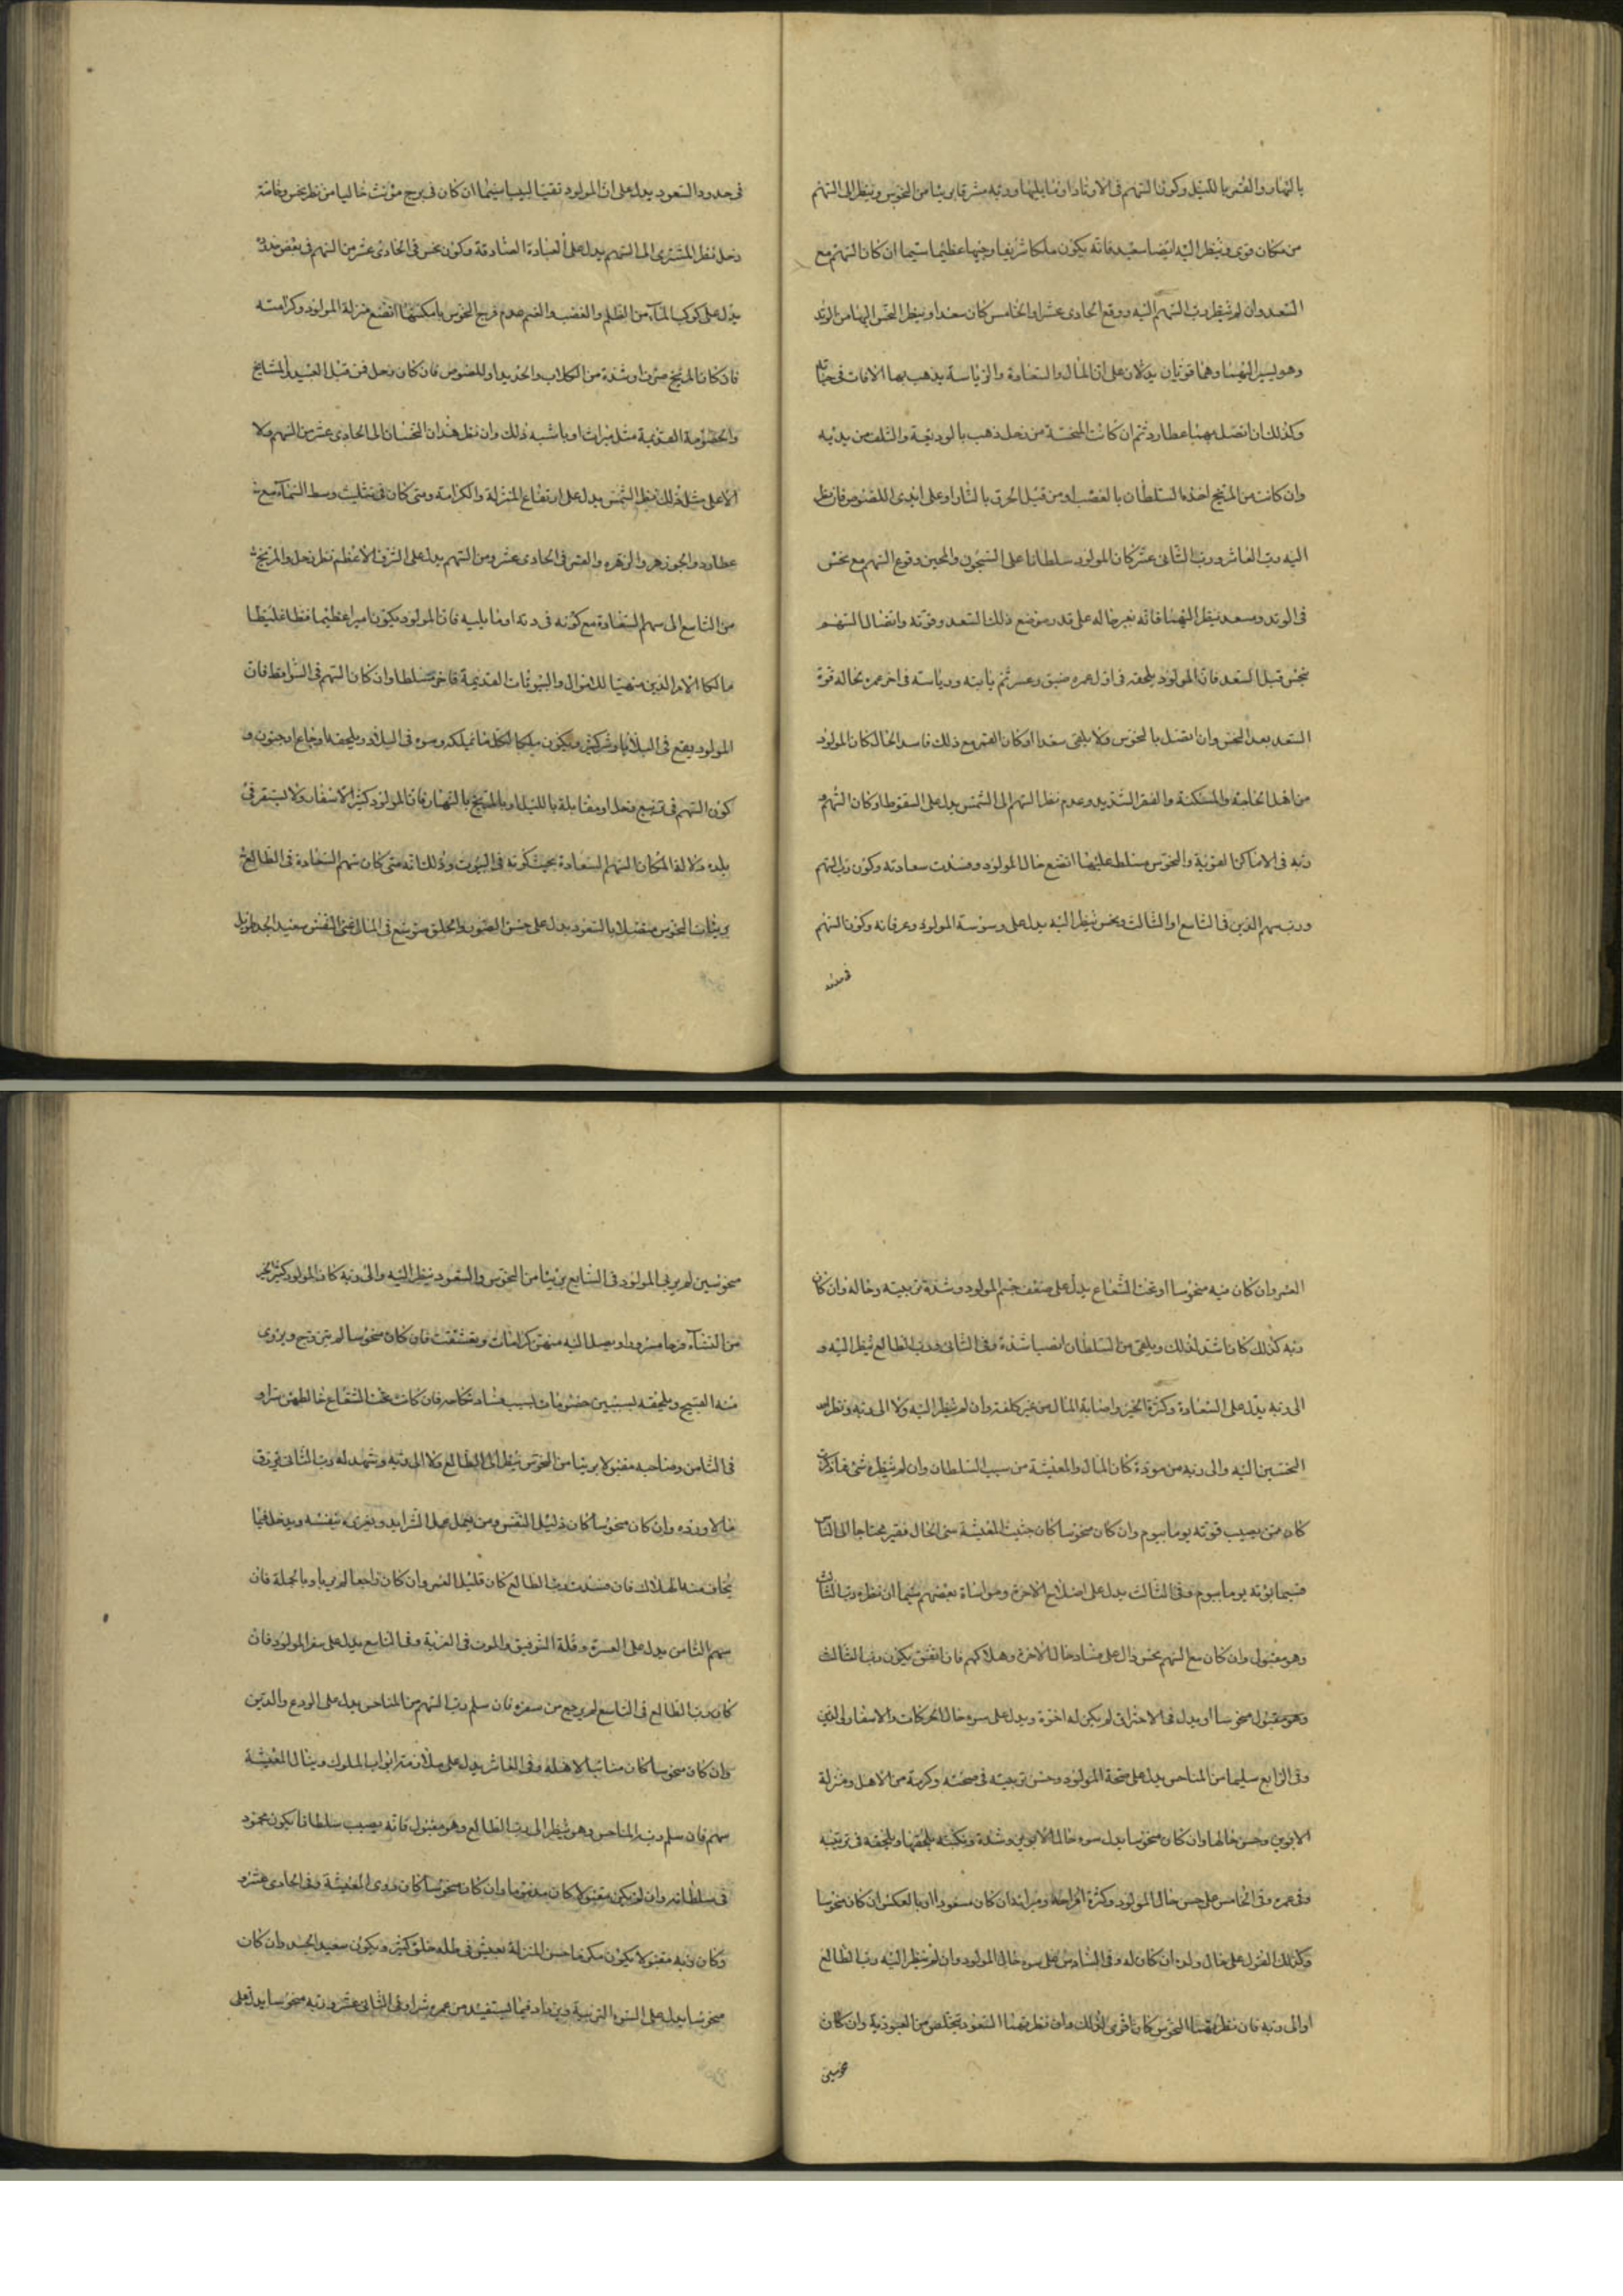 بالنهار والقمر بالليل وكون السهم فى الاوتاد او ما يليها وربه مشرقا بريئا من النحوس وينظر الى السهم
من مكان قوى وينظر اليه ايضا سعيد فانه يكون ملكا شريفا وجيها عظيما سيما ان كان السهم مع
السعد وان لم ينظر رب السهم اليه ووقع الحادى عشر او الخامس كان سعدا وينظر النحس اليها من الوتد
وهو يسير اليهما وهما قويان يدلان على ان المال والسعادة والرياسة يذهب بها الافات فى حياته
وكذلك ان اتصل بهما عطارد ثم ان كانت المنحسة من زحل ذهب بالوديعة والتلف من يديه
وان كانت من المريخ اخذه السلطان بالغصب او من قبل الحرق بالنار او على ايدى اللصوص فان نظر
اليه رب العاشر ورب الثانى عشر كان المولود سلطانا على السجون والمحن وقوع السهم مع نحس
فى الوتد وسعد ينظر اليهما فانه يغير حاله على قدر موضع ذلك السعد وقوته واتصال السهم
بنحس قبل السعد فان المولود يلحقه فى اول عمره ضيق وعسر ثم ياتيه ورياسته فى اخر عمره بحاله قوة
السعد بعد النحس وان اتصل بالنحوس ولا يلقى سعدا او كان القمر مع ذلك فاسد الحال كان المولود
من اهل الحاجة والمسكنة والفقر الشديد وعدم نظر السهم الى الشمس يدل على السقوط او كان السهم و
ربه فى الاماكن القوية والنحوس مسلطة عليهما اتضع حال المولود وفسدت سعادته وكون رب السهم
ورب سهم الدين فى التاسع او الثالث ونحس ينظر اليه يدل على وسوسة المولود وعرفانه وكون السهم
فى حدود
فى حدود السعود يدل على ان المولود نقيا لبيبا سيما ان كان فى برج مؤنث خاليا من نظر نحس وخاصة
زحل نظر المشترى الى السهم يدل على العبادة الصادقة وكون نحس فى الحادى عشر من السهم فى بعض
يدل على كوكب المتا من الظلم والغصب والغم صدم فرج النحوس بامكنتها اتضع منزلة المولود وكرامته
فان كان المريخ ضرب او شدة من الكلاب والحديد او اللصوص فان كان زحل فمن قبل العبيد او المشايخ
والخصومة القديمة مثل ميراث او ما شبه ذلك وان نظر هذان النحسان الى الحادى عشر من السهم ولا
الاعلى مثل ذلك نظر الشمس يدل على ارتفاع المنزلة والكرامة ومتى كان فى تثليث وسط السماء مع
عطارد والجوزهر والزهره والقمر فى الحادى عشر ومن السهم يدل على الشرف الاعظم نظر زحل والمريخ
من التاسع الى سهم السعادة مع كونه فى وتد او ما يليه فان المولود يكون اميرا عظيما فظا غليظا
مالكا الامر الذين متهيئا للاموال والبيوتات القديمة مسلطا وان كان السهم فى السواقط فان
المولود يقع فى البلايا ويكون ملكا لكل ما يملكه وسوء فى البلاد ويلحقه اوجاع او جنون و
كون السهم فى تربيع زحل او مقابلة بالليل او بالمريخ بالنهار فان المولود كثير الاسفار ولا يستقر فى
بلده دلالة المكان السهم السعادة بحيث كونه فى البيوت وذلك انه متى كان سهم السعادة فى الطالع
بريئا من النحوس متصلا بالسعود يدل على حسن الصورة والخلق متوسع فى المال غنى النفس سعيد الجد طويل
العمر وان كان فيه منحوسا او تحت الشعاع يدل على ضعف جسم المولود وشدة تربيته وحاله وان كان
ربه كذلك كان اشد لذلك ويلقى من السلطان ايضا شدة وفى الثانى ورب الطالع ينظر اليه و
الى ربه يدل على السعادة وكثرة الخير واصابة المال من غير كلفة وان لم ينظر اليه ولا الى ربه ونظر
النحسين اليه والى ربه من مودة كان المال والمعيشة من سبب السلطان وان لم ينظره شئ مما ذكرت
كان ممن يصيب قوته يوما بيوم وان كان منحوسا كان خبيث المعيشة سئ الحال فقير محتاجا الى الناس
قوته يوما بيوم وفى الثالث يدل على اصلاح الاخوة ومواساة بعضهم سيما ان نظره رب الثالث
وهو مقبول وان كان مع السهم نحس دال على فساد حال الاخوة وهلاكهم فان اتفق يكون رب الثالث
وهو مقبول منحوسا او يدل فى الاحتراق لم يكن له اخوة ويدل على سوء حال الحركات والاسفار الى الدين
وفى الرابع سليما من المناحس يدل على صحة المولود وحسن تربيته فى صحته وكرمة من الاهل ومنزلة
الابوين وحسن حالها وان كان منحوسا يدل سوء حال الابوين وشدة ونكبته يلحقها ويلحقه فى تربيته
وفى عمره وفى الخامس على حسن حال المولود وكثرة افراحه وميراثه ان كان مسعودا او بالعكس ان كان منحوسا
وكذلك القول على حال ولده ان كان له وفى السادس على سوء حال المولود وان لم ينظر اليه رب الطالع
او الى ربه فان نظر بهما النحوس كان اقوى لذلك وان نظر بهما السعود يتخلص من العبودية وان كان
منحوسين
منحوسين لم يربى المولود فى السابع بريئا من النحوس والسعود ينظر اليه والى ربه كان المولود كثير الخير
من النساء فرحا مسرورا ويصل اليه منهن كرامات وبعشقت فان كان منحوسا لم يتزوج ويروى
منه القبيح ويلحقه بسببهن خصومات بسبب فساد نكاحه فان كانت تحت الشعاع خالطهن سرا و
فى الثامن وصاحبه مقبولا بريئا من النحوس ينظر الى الطالع ولا الى ربه وشهد له رب الثانى يرزق
مالا ورده وان كان منحوسا كان ذليل النفس ومن يعمل عمل الشرايد ويغرى بنفسه ويدخل فيما
يخاف منه الهلاك فان فسدت رب الطالع كان قليل العمر وان كان راجعا لم يربا وبالجملة فان
سهم الثامن يدل على العسرة وقلة التوفيق والموت فى الغربة وفى التاسع يدل على سفر المولود فان
كان رب الطالع فى التاسع لم يرجع من سفره فان سلم رب السهم من المناحس يدل على الورع والدين
وان كان منحوسا كان منائيا لاهله وفى العاشر يدل على ملازمة ابواب الملوك وينال المعيشة
منهم فان سلم ربه المناحس وهو ينظر الى رب الطالع وهو مقبول فانه يصيب سلطانا يكون محمود
فى سلطانه وان لم يكن مقبولا كان مذموما وان كان منحوسا كان ردى المعيشة وفى الحادى عشر و
وكان ربه مقبولا يكون مكرما حسن المنزلة يعيش فى ظله خلق كثير ويكون سعيد الجد وان كان
منحوسا يدل على السوء التربية وينزداد فيما يستفيد من عمره شرا وفى الثانى عشر وربه منحوسا يدل على